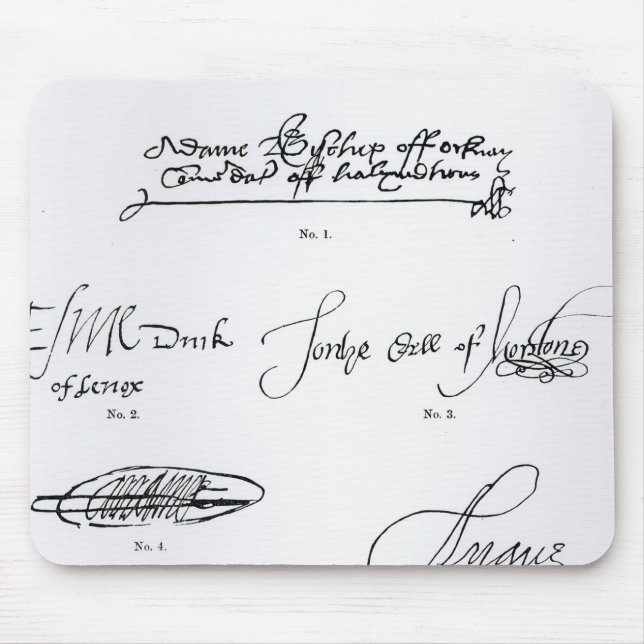 Adame Bischep off orknay
Comēdat off halyrudhous
No. 1.
Esme Duik
of lenox
No. 2.
Jonhe Erll of
No. 3.
No. 4.